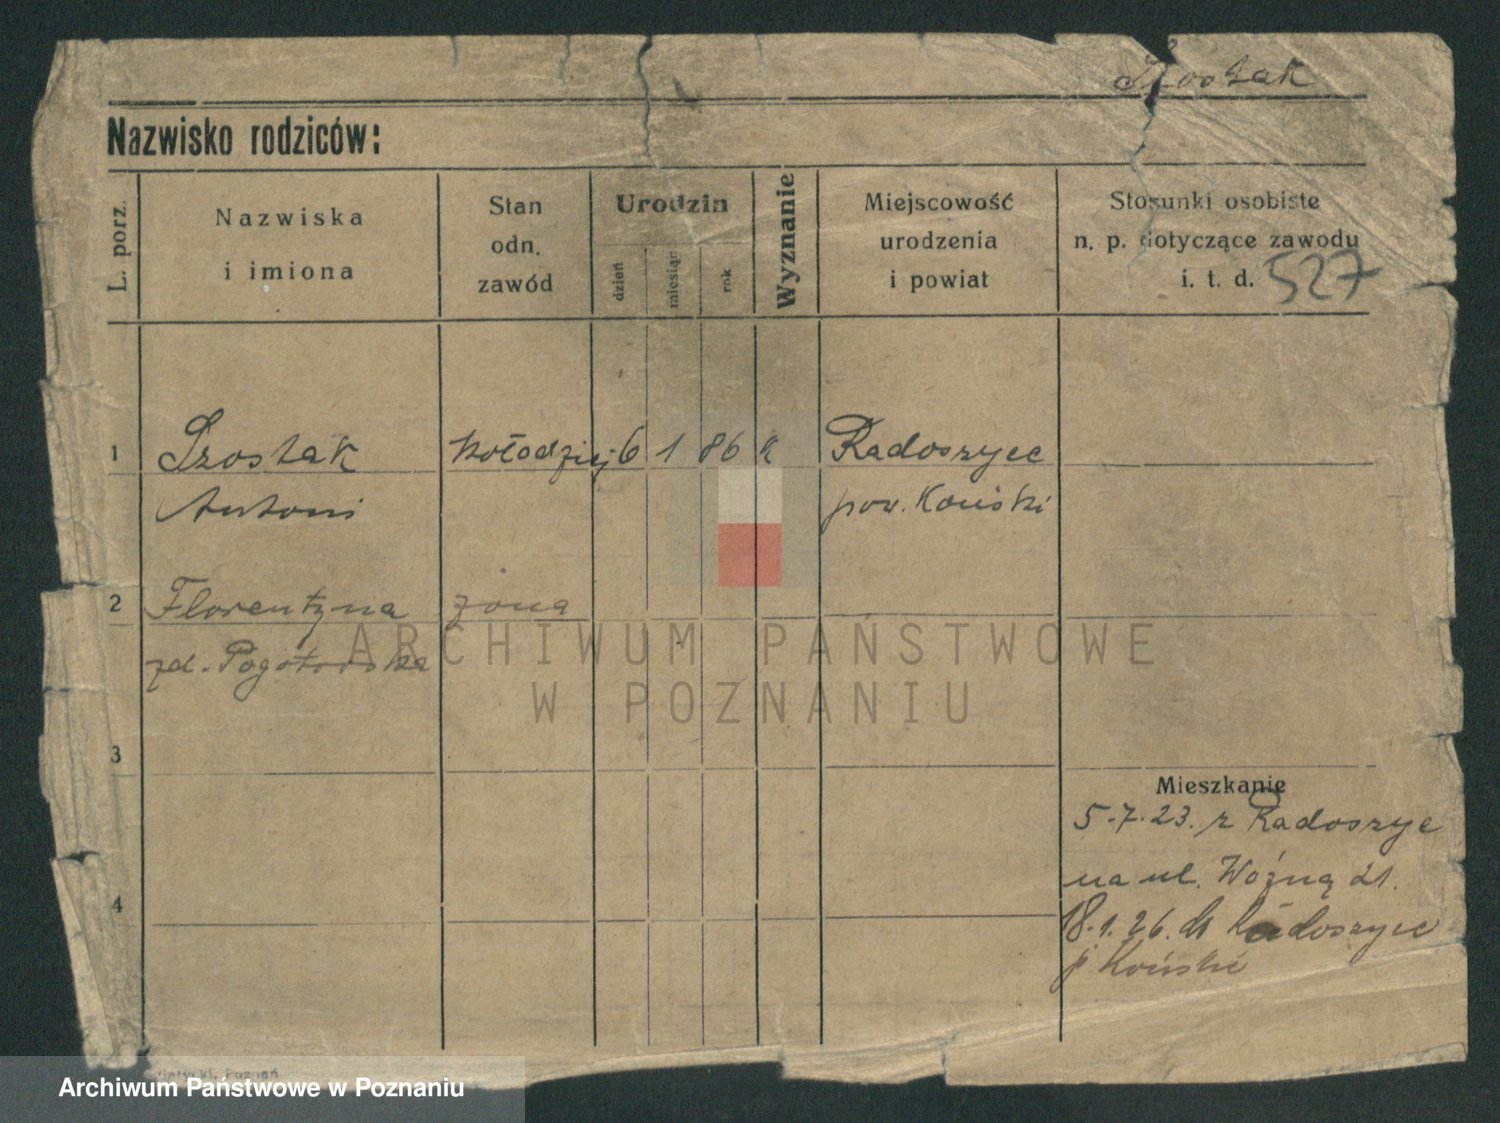 Szostak
Nazwisko rodziców:
L. porz.
Nazwiska
i imiona
Stan
odn.
zawód
Urodzin
dzień
miesiąc
rok
Wyznanie
Miejscowość
urodzenia
i powiat
Stosunki osobiste
n. p. dotyczące zawodu
i. t. d.
527
1 Szostak kołodziej 6 1 86 k Radoszyce
Antoni pow. Koński
2 Florentyna żona
zd.
3
Mieszkanie
5.7.23. z Radoszyc
na ul. Woźną 21.
4
18.1.26. do Radoszyce
p Końskie
ARCHIWUM PAŃSTWOWE
W POZNANIU
Poznań
Archiwum Państwowe w Poznaniu